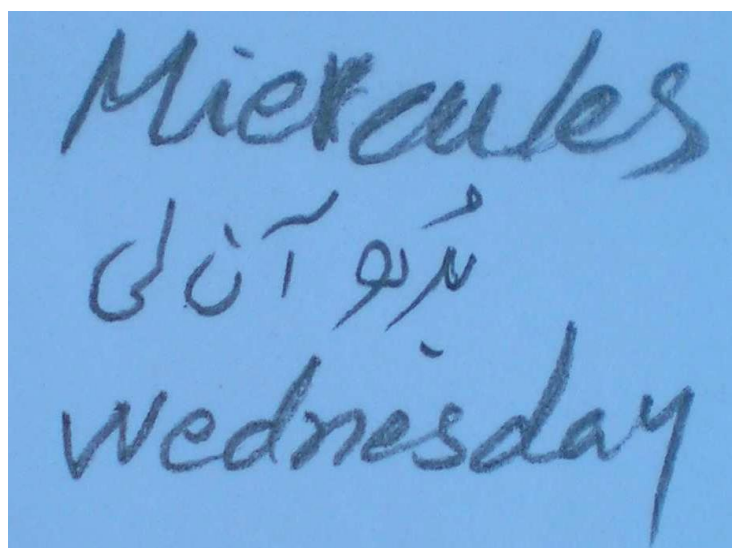 Miercules
بُرو آن لی
wednesday